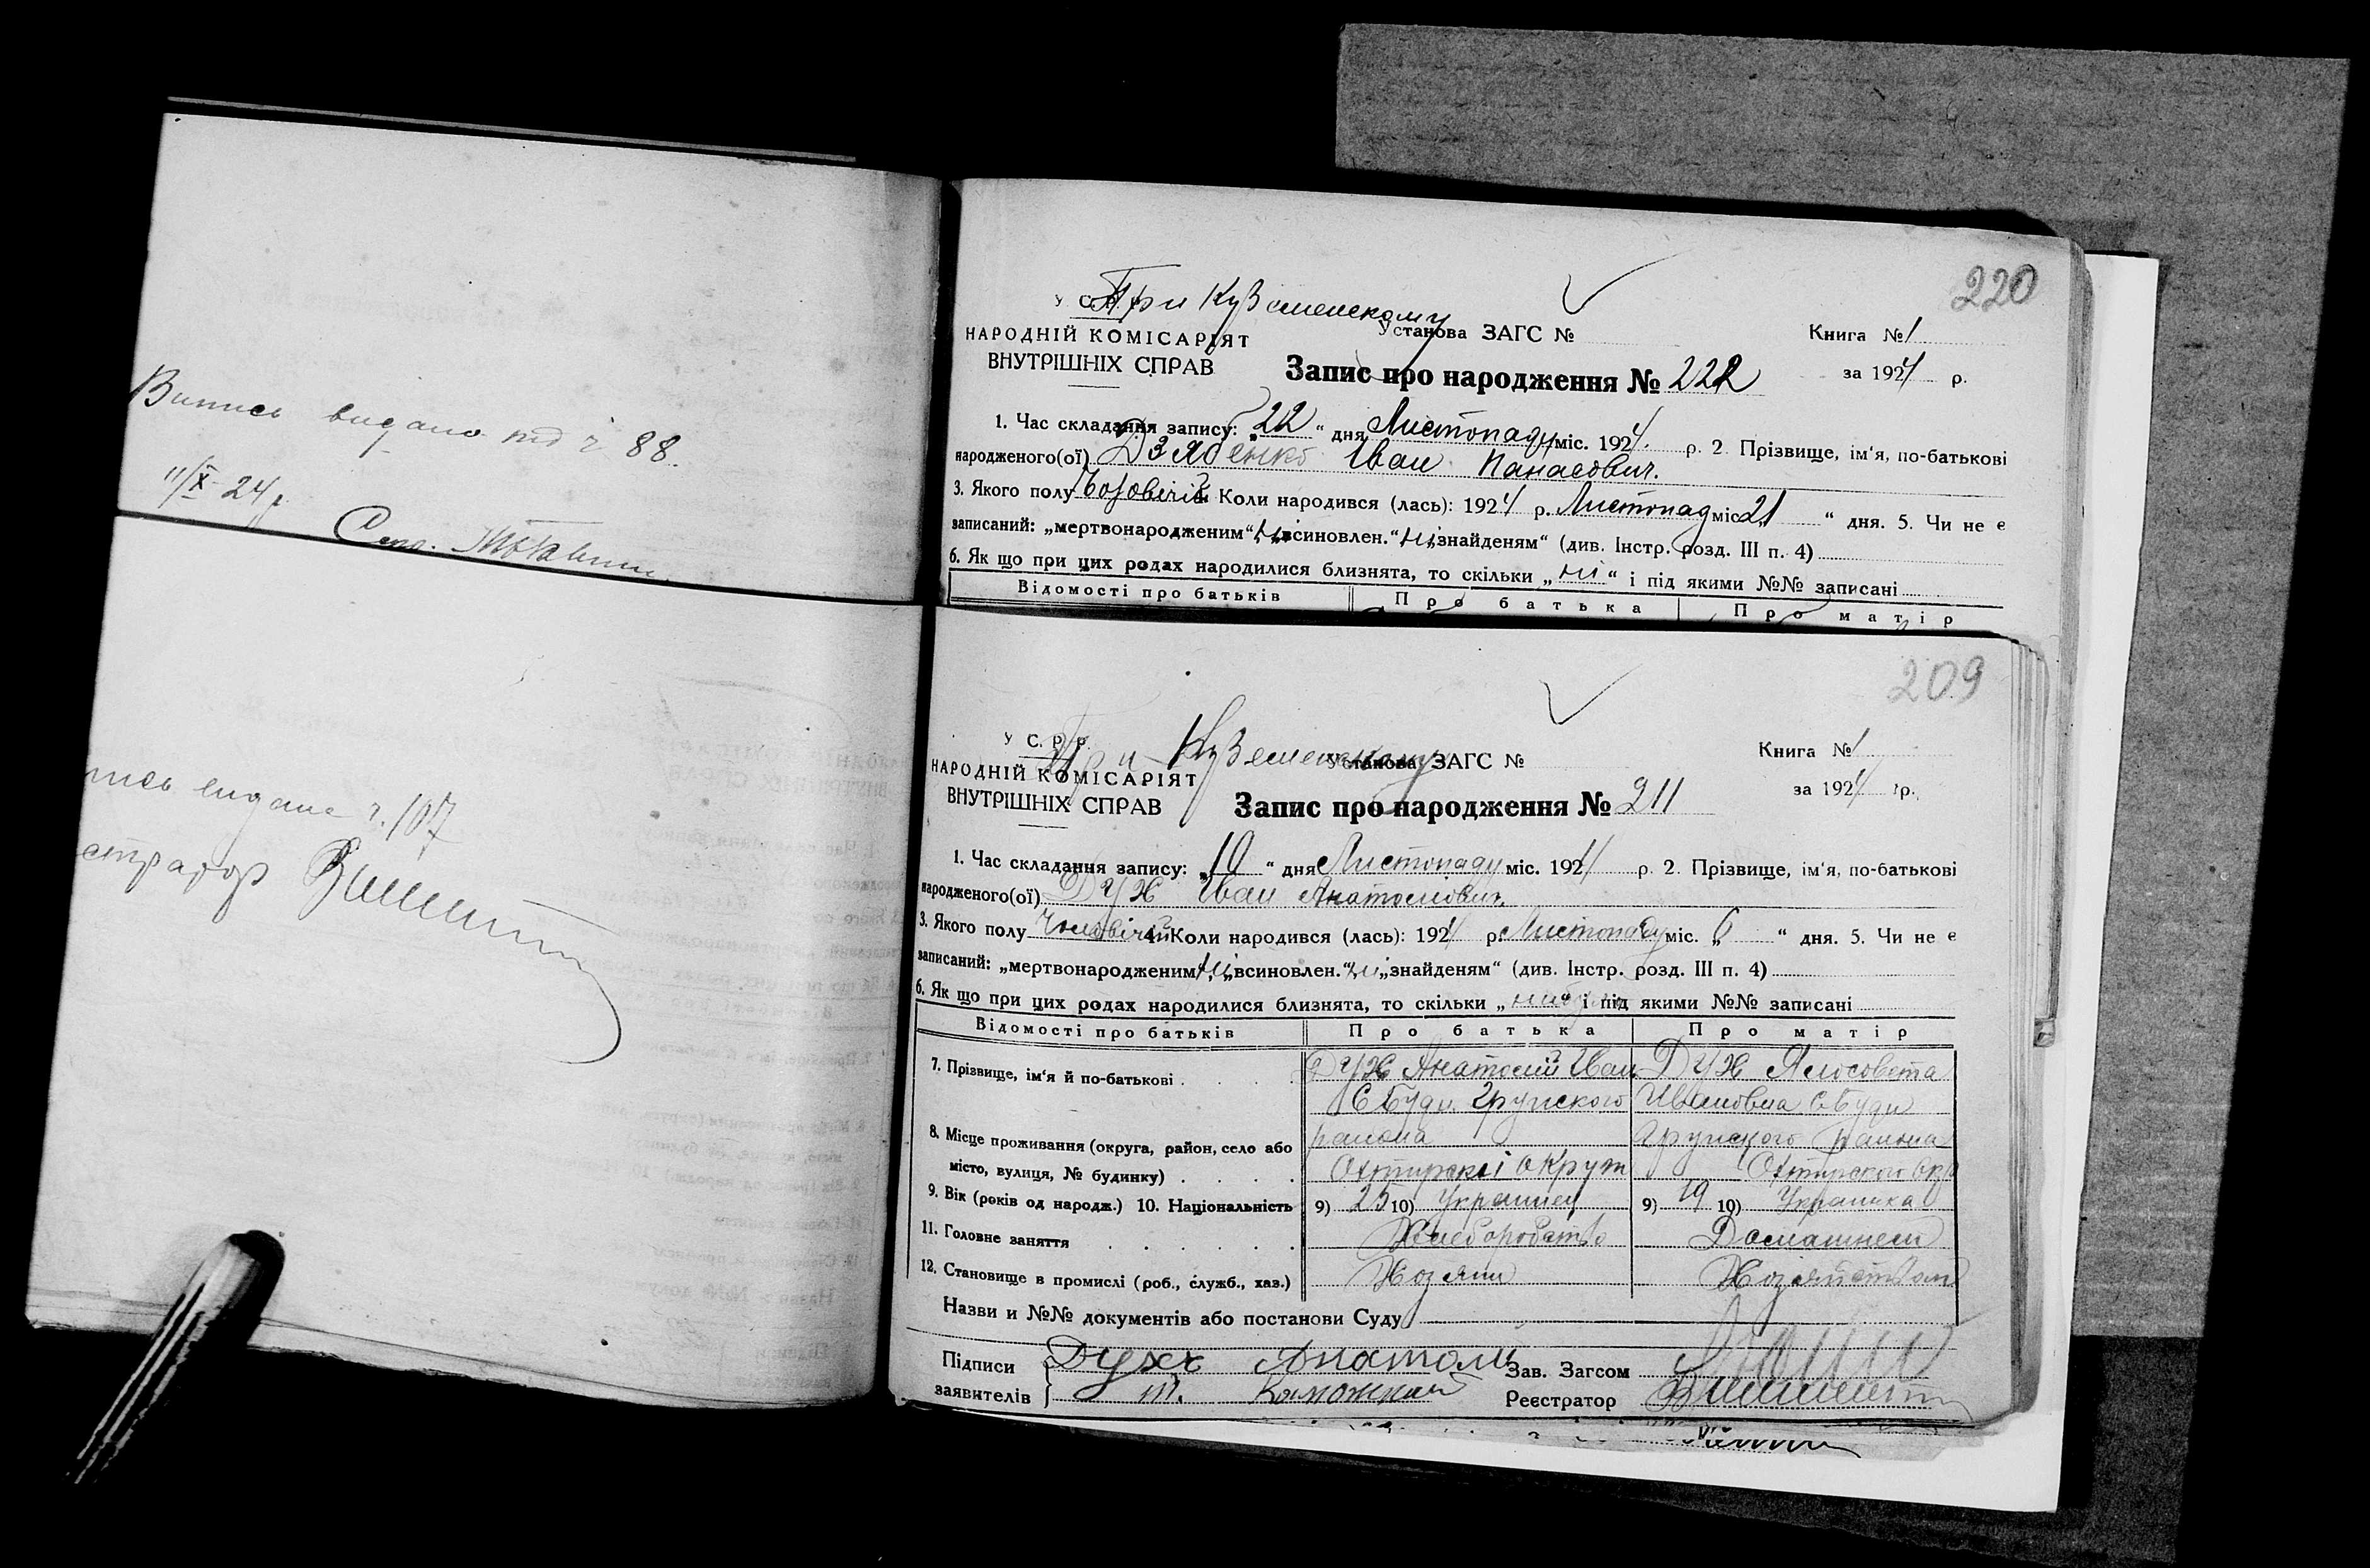 Випись видано під ч 88.
11/X 24 р.
Секр.
220
При Куземенскому
У С. Р. Р.
НАРОДНІЙ КОМІСАРІЯТ
ВНУТРІШНІХ СПРАВ
Установа ЗАГС №
Книга № 1
за 1924 р.
Запис про народження № 222
1. Час складання запису: „22“ дня Листопаду міс. 1924 р. 2. Прізвище, ім'я, по-батькові
народженого(ої) Дзябенко Іван Панасович.
3. Якого полу Чоловічій 4. Коли народився (лась): 1924 р. Листопад міс. „21“ дня. 5. Чи не є
записаний: „мертвонародженим“ ні „всиновлен.“ ні „знайденям“ (див. Інстр. розд. III п. 4)
6. Як що при цих родах народилися близнята, то скільки „ні“ і під якими №№ записані
Відомості про батьків Про батька Про матір
пись видана ч. 107
стратор
209
При Куземенскому
У С. Р. Р.
НАРОДНІЙ КОМІСАРІЯТ
ВНУТРІШНІХ СПРАВ
Установа ЗАГС №
Книга № 1
за 1924 р.
Запис про народження № 211
1. Час складання запису: „10“ дня Листопаду міс. 1924 р. 2. Прізвище, ім'я, по-батькові
народженого(ої) Дух Іван Анатолиович
3. Якого полу Чоловічій 4. Коли народився (лась): 1924 р. Листопаду міс. „6“ дня. 5. Чи не є
записаний: „мертвонародженим“ ні „всиновлен.“ ні „знайденям“ (див. Інстр. розд. III п. 4)
6. Як що при цих родах народилися близнята, то скільки „ “ і під якими №№ записані
Відомості про батьків Про батька Про матір
7. Прізвище, ім'я й по-батькові Дух Анатолий Иван Дух Ялосовета
С Буди Грунского Ивановна С Буди
8. Місце проживання (округа, район, село або района Грунского района
місто, вулиця, № будинку) Охтирскої округи Охтирского окр
9. Вік (років од народж.) 10. Національність 9) 25 10) Украинец 9) 19 10) Украинка
11. Головне заняття Хлеборобство Домашнем
12. Становище в промислі (роб., служб., хаз.) Хозяин Хозяйством
Назви и №№ документів або постанови Суду
Підписи Духъ Анатоли Зав. Загсом
заявителів Реєстратор